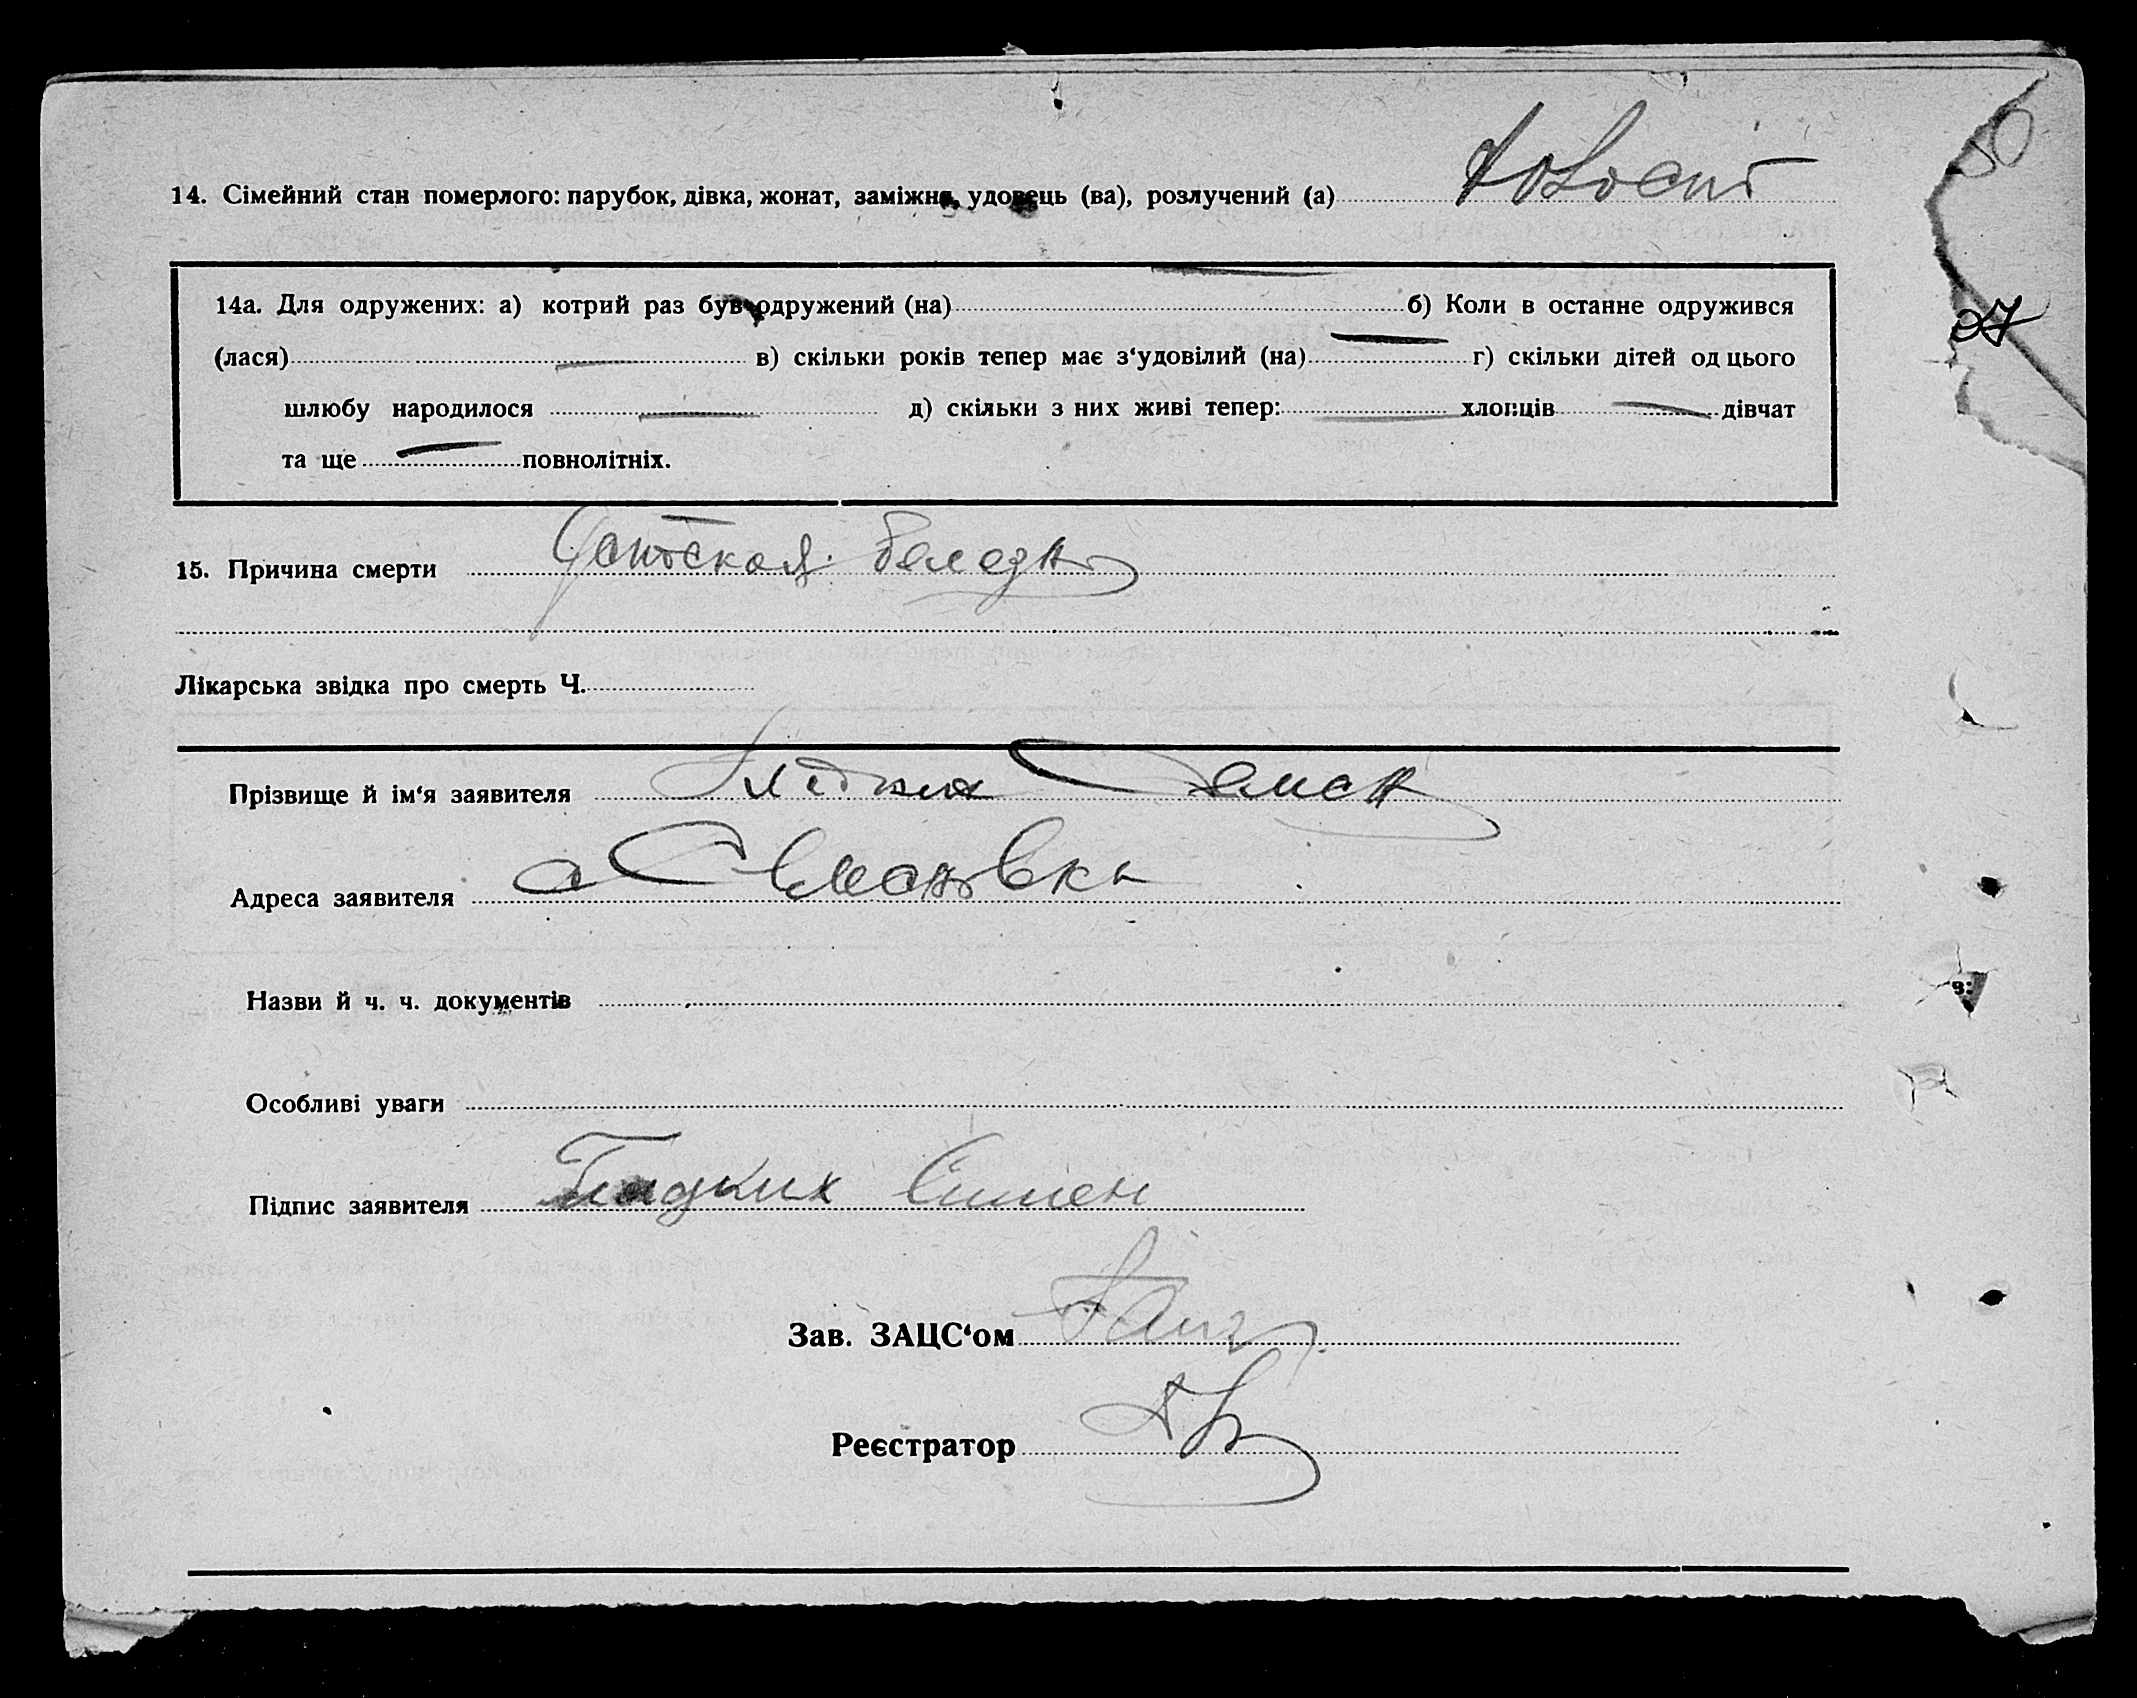 14. Сімейний стан померлого: парубок, дівка, жонат, заміжня, удовець (ва), розлучений (а) холост
27
14а. Для одружених: а) котрий раз був одружений (на) — б) Коли в останнє одружився
(лася) — в) скільки років тепер має з‘удовілий (на) — г) скільки дітей од цього
шлюбу народилося — д) скільки з них живі тепер: — хлопців — дівчат
та ще — повнолітніх.
15. Причина смерти Детская болезнь
Лікарська звідка про смерть Ч.
Прізвище й ім‘я заявителя Гладких Семен
Адреса заявителя с Семоновка
Назви й ч. ч. документів
Особливі уваги
Підпис заявителя Гладких Симен
Зав. ЗАЦС‘ом
Реєстратор